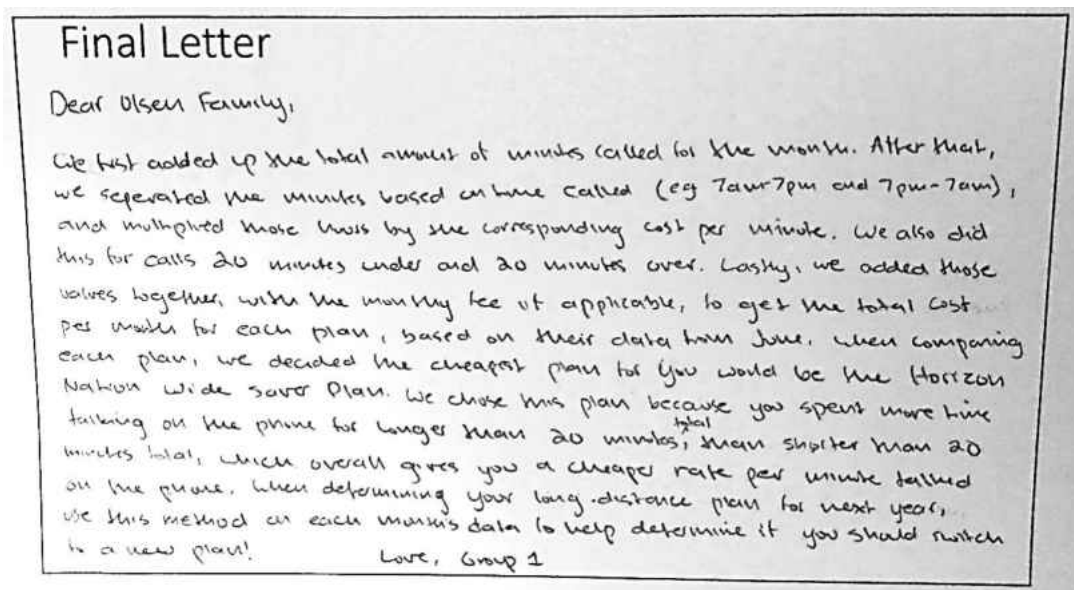 Final Letter
Dear Olsen Family,
We first added up the total amount of minutes called for the month. After that,
we seperated the minutes based on time called (eg 7am-7pm and 7pm-7am),
and multiplied those by the corresponding cost per minute. We also did
this for calls 20 minutes under and 20 minutes over. Lastly, we added those
values together, with the monthly fee if applicable, to get the total cost
per month for each plan, based on their data from June. When comparing
each plan, we decided the cheapest plan for you would be the Horizon
Nation Wide Saver Plan. We chose this plan because you spent more time
talking on the phone for longer than 20 minutes, total than shorter than 20
minutes total, which overall gives you a cheaper rate per minute talked
on the phone. When determining your long-distance plan for next year,
use this method on each month's data to help determine if you should switch
to a new plan! Love, Group 1